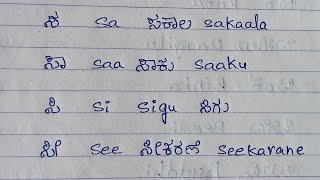 ಸ sa ಸಕಾಲ sakaala
ಸಾ saa ಸಾಕು saaku
ಸಿ si sigu ಸಿಗು
ಸೀ see ಸೀಕರಣೆ seekarane